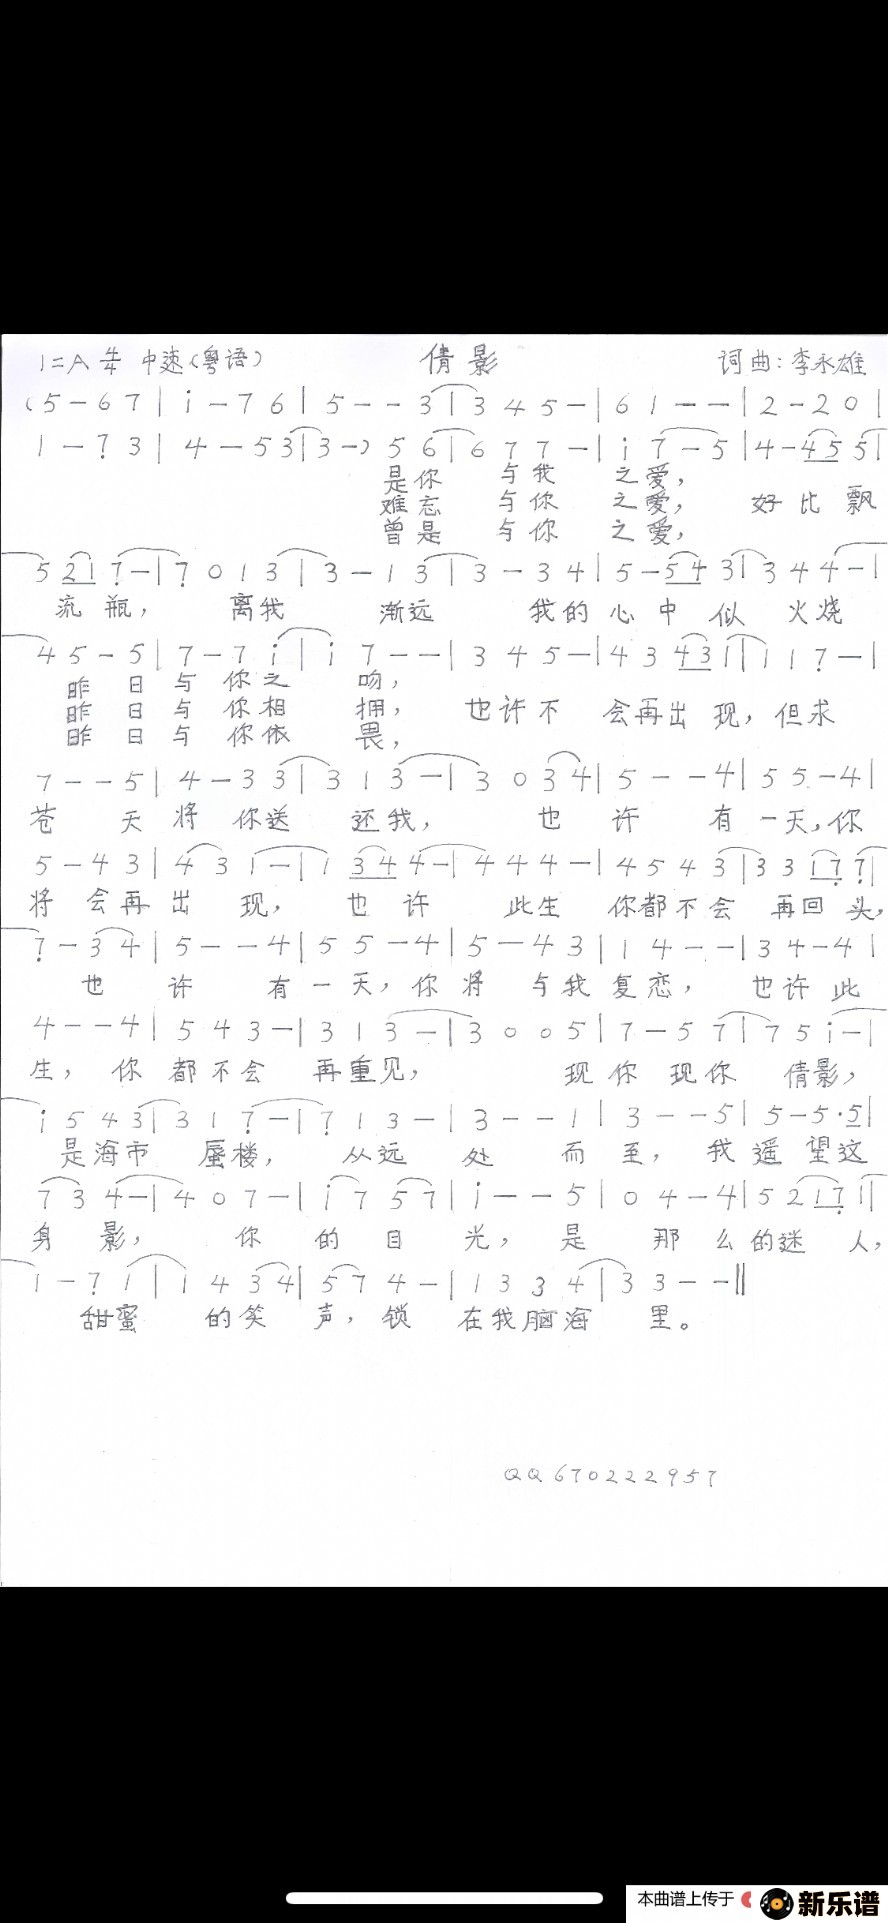 1=A 4/4 中速(粤语) 倩影 词曲:李永雄
(5-67|i-76|5--3|345-|61--|2-20|
1-73|4-53|3-)56|677-|i7-5|4-455|
是你 与我 之爱,
难忘 与你 之爱, 好比飘
曾是 与你 之爱,
5217-|7013|3-13|3-34|5-543|344-|
流瓶, 离我 渐远 我的心中似火烧
45-5|7-7i|i7--|345-|43431|117-|
昨日与你之 吻,
昨日与你相 拥, 也许不会再出现,但求
昨日与你依 畏,
7--5|4-33|313-|3034|5--4|55-4|
苍天将你送还我, 也许有一天,你
5-43|431-|1344-|444-|4543|33177|
将会再出现, 也许此生你都不会再回头,
7-34|5--4|55-4|5-43|14--|34-4|
也许有一天,你将与我复恋, 也许此
4--4|543-|313-|3005|7-57|75i-|
生,你都不会再重见, 现你现你倩影,
i543|317-|713-|3--1|3--5|5-5·5|
是海市蜃楼, 从远处而至,我遥望这
734-|407-|i757|i--5|04-4|52171|
身影, 你的目光,是那么的迷人,
1-71|1434|574-|1334|33--‖
甜蜜的笑声,锁在我脑海里。
QQ670222957
本曲谱上传于 新乐谱